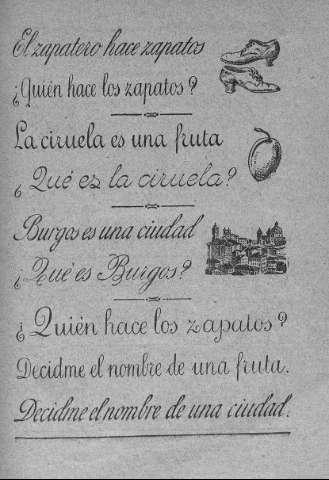 El zapatero hace zapatos
¿Quién hace los zapatos?
La ciruela es una fruta
¿Qué es la ciruela?
Burgos es una ciudad
¿Qué es Burgos?
¿Quién hace los zapatos?
Decidme el nombre de una fruta.
Decidme el nombre de una ciudad.